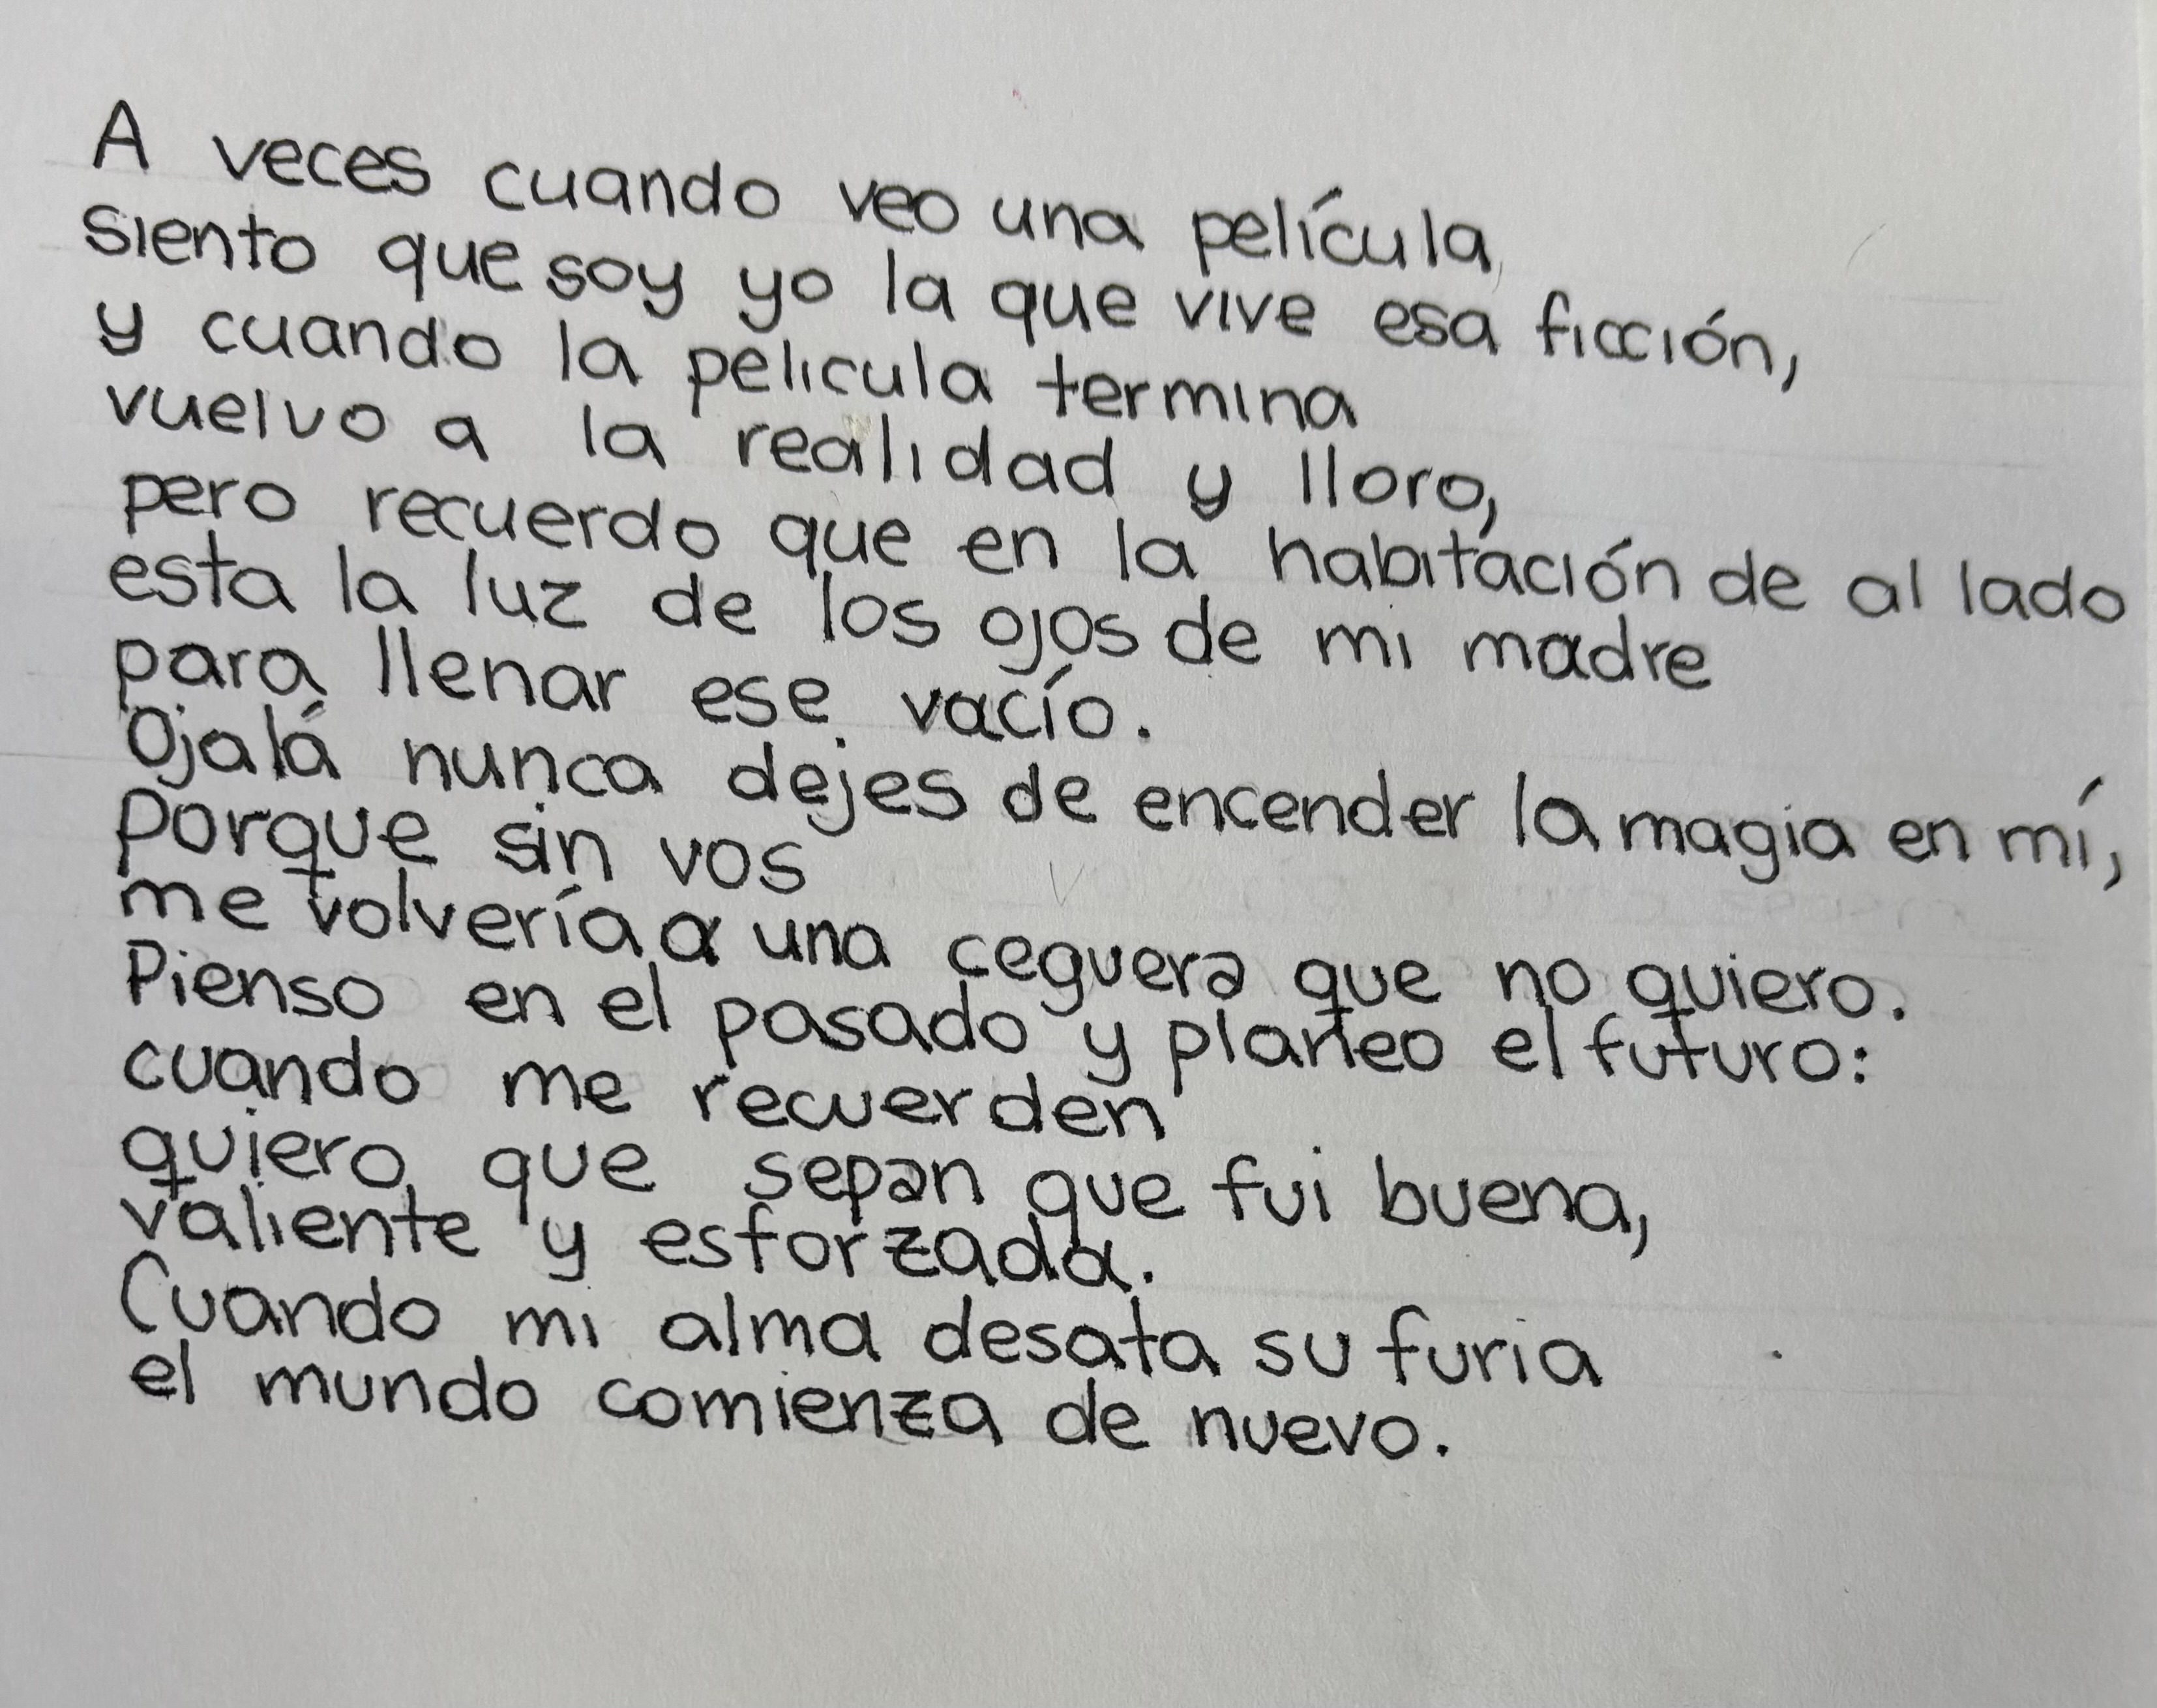 A veces cuando veo una película,
siento que soy yo la que vive esa ficción,
y cuando la pelicula termina
vuelvo a la realidad y lloro,
pero recuerdo que en la habitación de al lado
esta la luz de los ojos de mi madre
para llenar ese vacío.
Ojalá nunca dejes de encender la magia en mí,
porque sin vos
me volvería a una ceguera que no quiero.
Pienso en el pasado y planeo el futuro:
cuando me recuerden
quiero que sepan que fui buena,
valiente y esforzada.
Cuando mi alma desata su furia
el mundo comienza de nuevo.